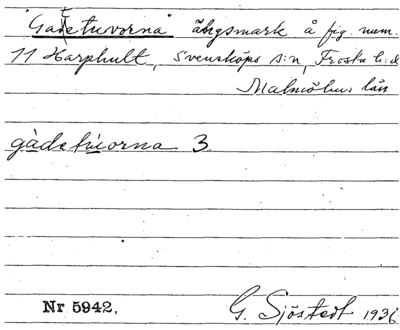 "Gadetuvorna" ängsmark å fig. num.
11 Harphult, Svensköps s:n, Frosta h:d
Malmöhus län
gàdetúorna 3
Nr 5942.
G. Sjöstedt 1936